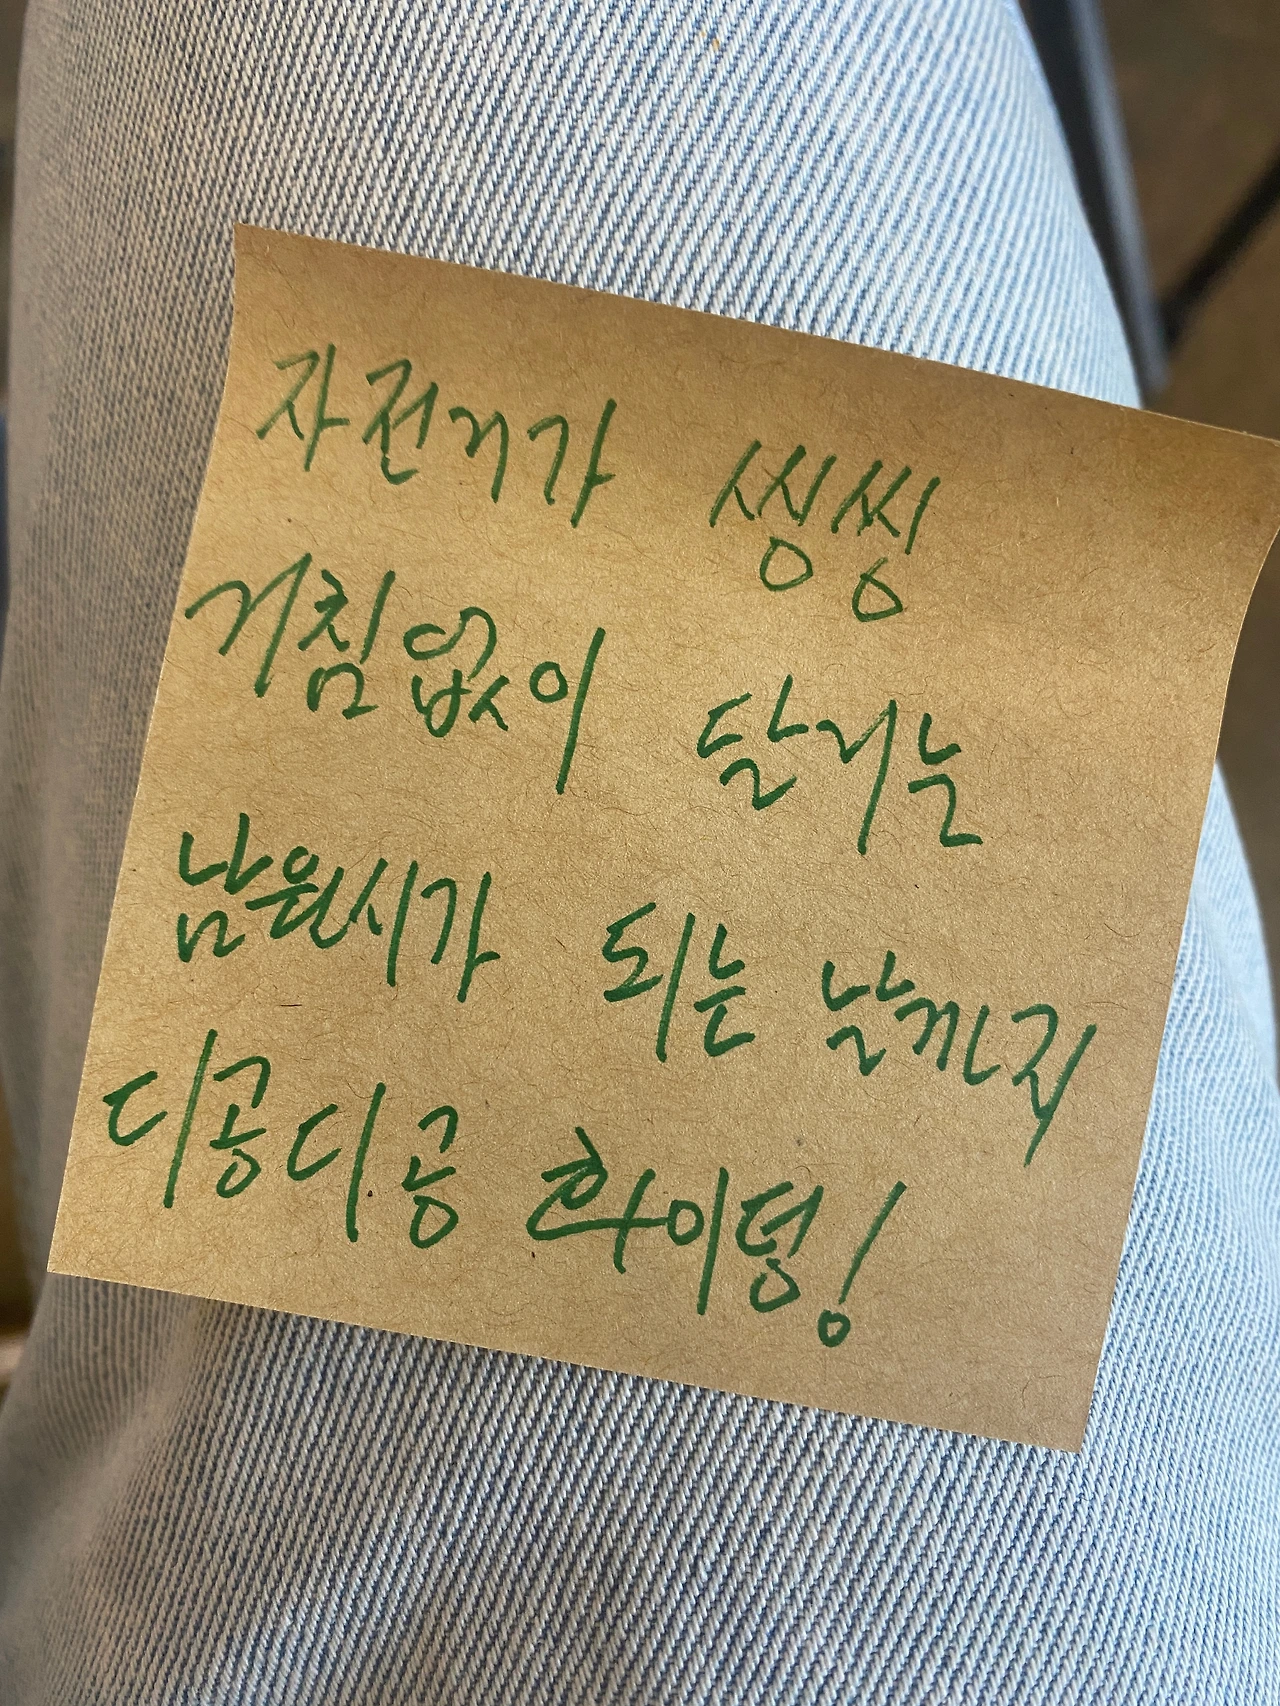 자전거가 씽씽
거침없이 달리는
남원시가 되는 날까지
디공디공 화이팅!